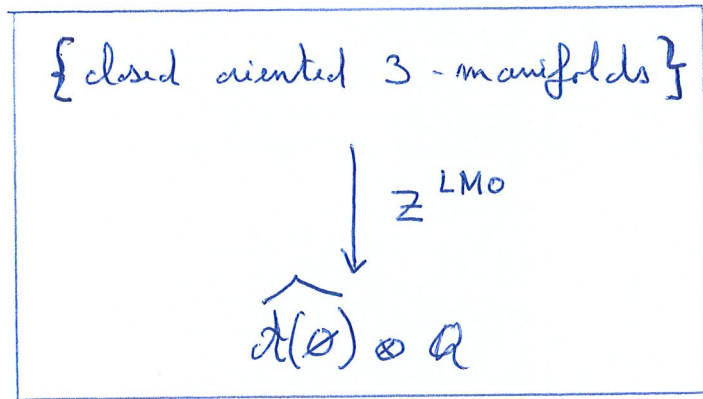 {closed oriented 3-manifolds}
Z^{LMO}
\widehat{A(∅)} ⊗ Q